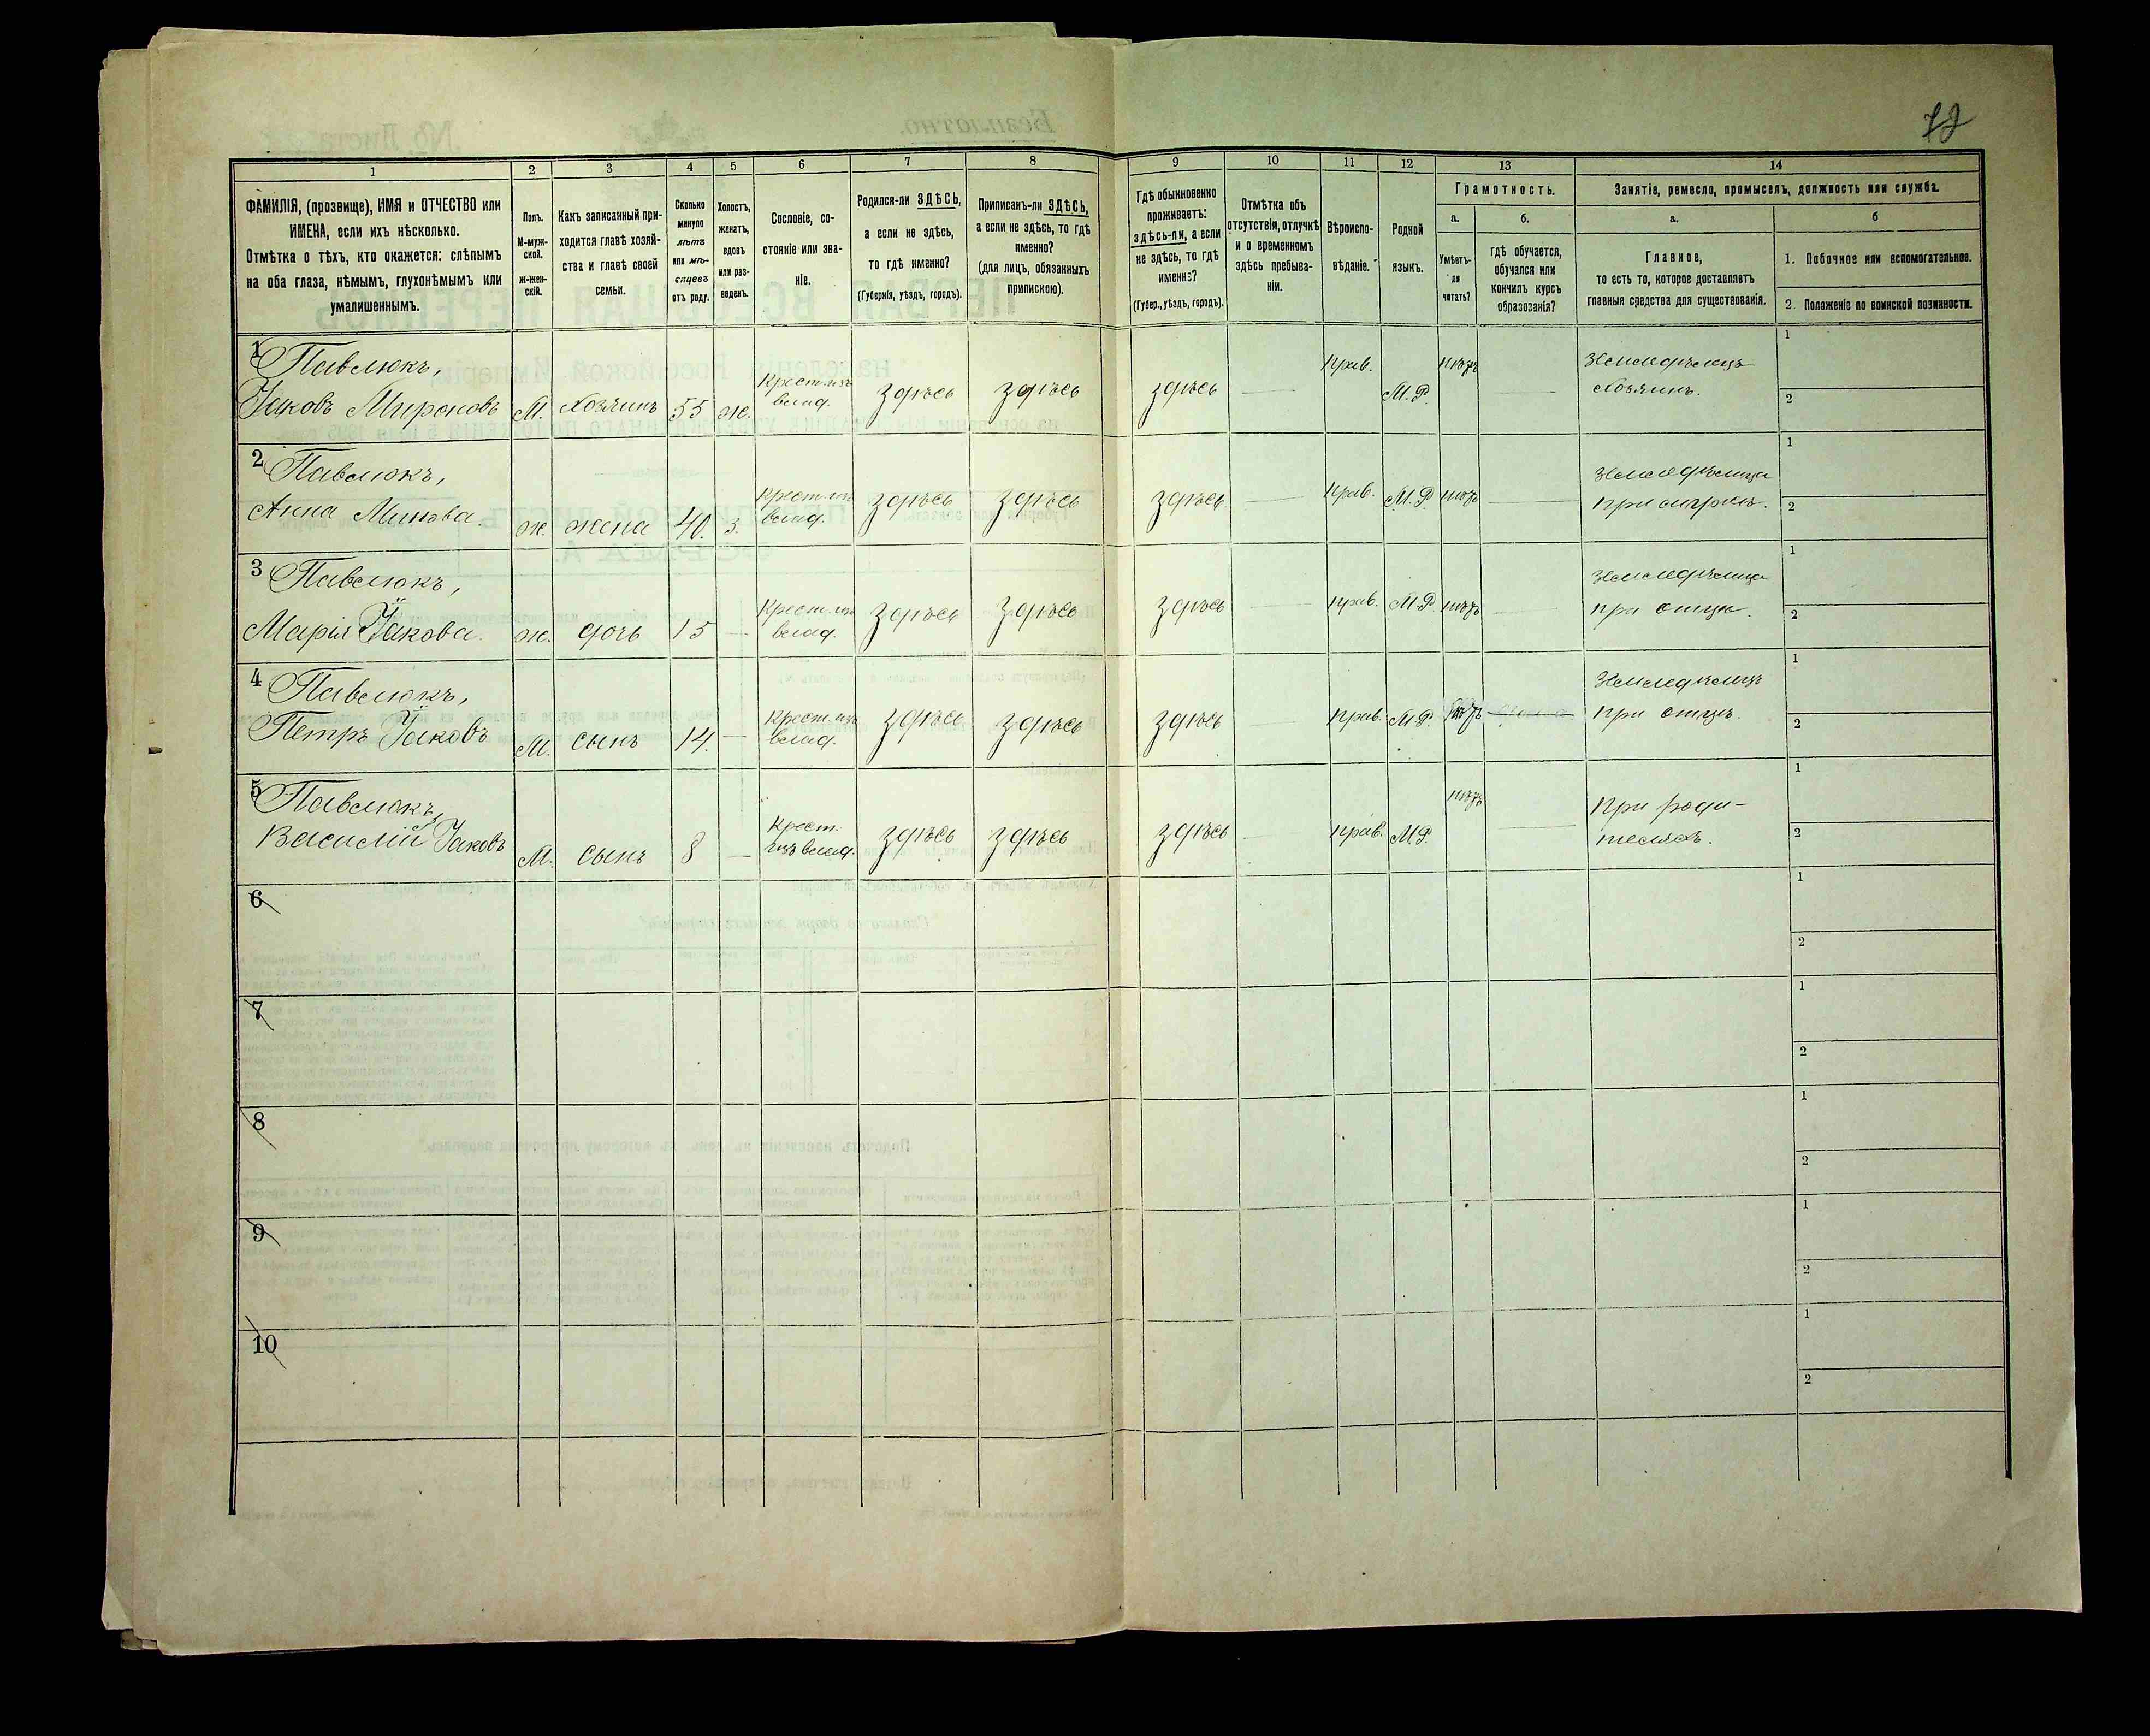 72
1 2 3 4 5 6 7 8 9 10 11 12 13 14
ФАМИЛІЯ, (прозвище), ИМЯ и ОТЧЕСТВО или
ИМЕНА, если ихъ нѣсколько.
Отмѣтка о тѣхъ, кто окажется: слѣпымъ
на оба глаза, нѣмымъ, глухонѣмымъ или
умалишеннымъ.
Полъ.
М-муж-
ской.
Ж-жен-
скій.
Какъ записанный при-
ходится главѣ хозяй-
ства и главѣ своей
семьи.
Сколько
минуло
лѣтъ
или мѣ-
сяцевъ
отъ роду.
Холостъ,
женатъ,
вдовъ
или раз-
веденъ.
Сословіе, со-
стояніе или зва-
ніе.
Родился-ли ЗДѢСЬ,
а если не здѣсь,
то гдѣ именно?
(Губернія, уѣздъ, городъ).
Приписанъ-ли ЗДѢСЬ,
а если не здѣсь, то гдѣ
именно?
(для лицъ, обязанныхъ
припискою).
Гдѣ обыкновенно
проживаетъ:
здѣсь-ли, а если
не здѣсь, то гдѣ
именно?
(Губер., уѣздъ, городъ).
Отмѣтка объ
отсутствіи, отлучкѣ
и о временномъ
здѣсь пребыва-
ніи.
Вѣроиспо-
вѣданіе.
Родной
языкъ.
Грамотность.
а.
Умѣетъ-
ли
читать?
б.
гдѣ обучается,
обучался или
кончилъ курсъ
образованія?
Занятіе, ремесло, промыселъ, должность или служба.
а.
Главное,
то есть то, которое доставляетъ
главныя средства для существованія.
б
1. Побочное или вспомогательное.
2. Положеніе по воинской повинности.
1 Павлюкъ,
Яковъ Мироновъ М. хозяинъ 55 ж. Крест. изъ влад. здѣсь здѣсь здѣсь — Прав. М.Р. нѣтъ — Земледѣлецъ хозяинъ. 1 2
2 Павлюкъ,
Анна Минова. ж. жена 40. з. Крест. изъ влад. здѣсь здѣсь здѣсь — Прав. М.Р. нѣтъ — Земледѣлица при мужѣ. 1 2
3 Павлюкъ,
Марія Якова. ж. дочь 15 — Крест. изъ влад. здѣсь здѣсь здѣсь — Прав. М.Р. нѣтъ — Земледѣлица при отцѣ. 1 2
4 Павлюкъ,
Петръ Яковъ М. сынъ 14. — Крест. изъ влад. здѣсь здѣсь здѣсь — Прав. М.Р. нѣтъ — Земледѣлецъ при отцѣ. 1 2
5 Павлюкъ,
Василій Яковъ М. сынъ 8 — Крест. изъ влад. здѣсь здѣсь здѣсь — Прав. М.Р. нѣтъ — При роди-
теляхъ. 1 2
6 1 2
7 1 2
8 1 2
9 1 2
10 1 2